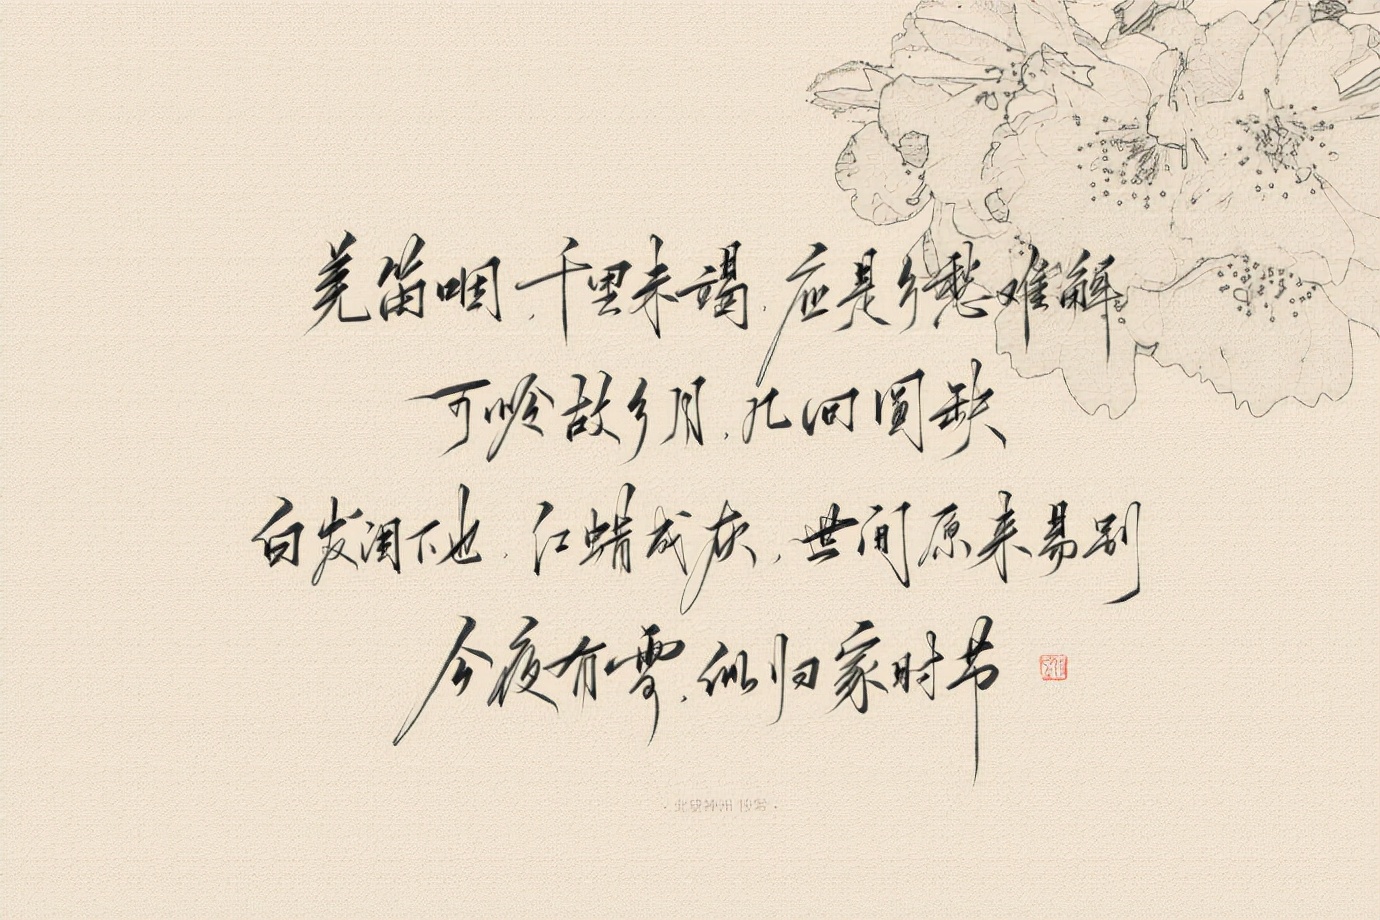 羌笛咽,千里未竭,应是乡愁难解
可怜故乡月,几回圆缺
白发凋下也,红蜡成灰,世间原来易别
今夜有雪,似归家时节